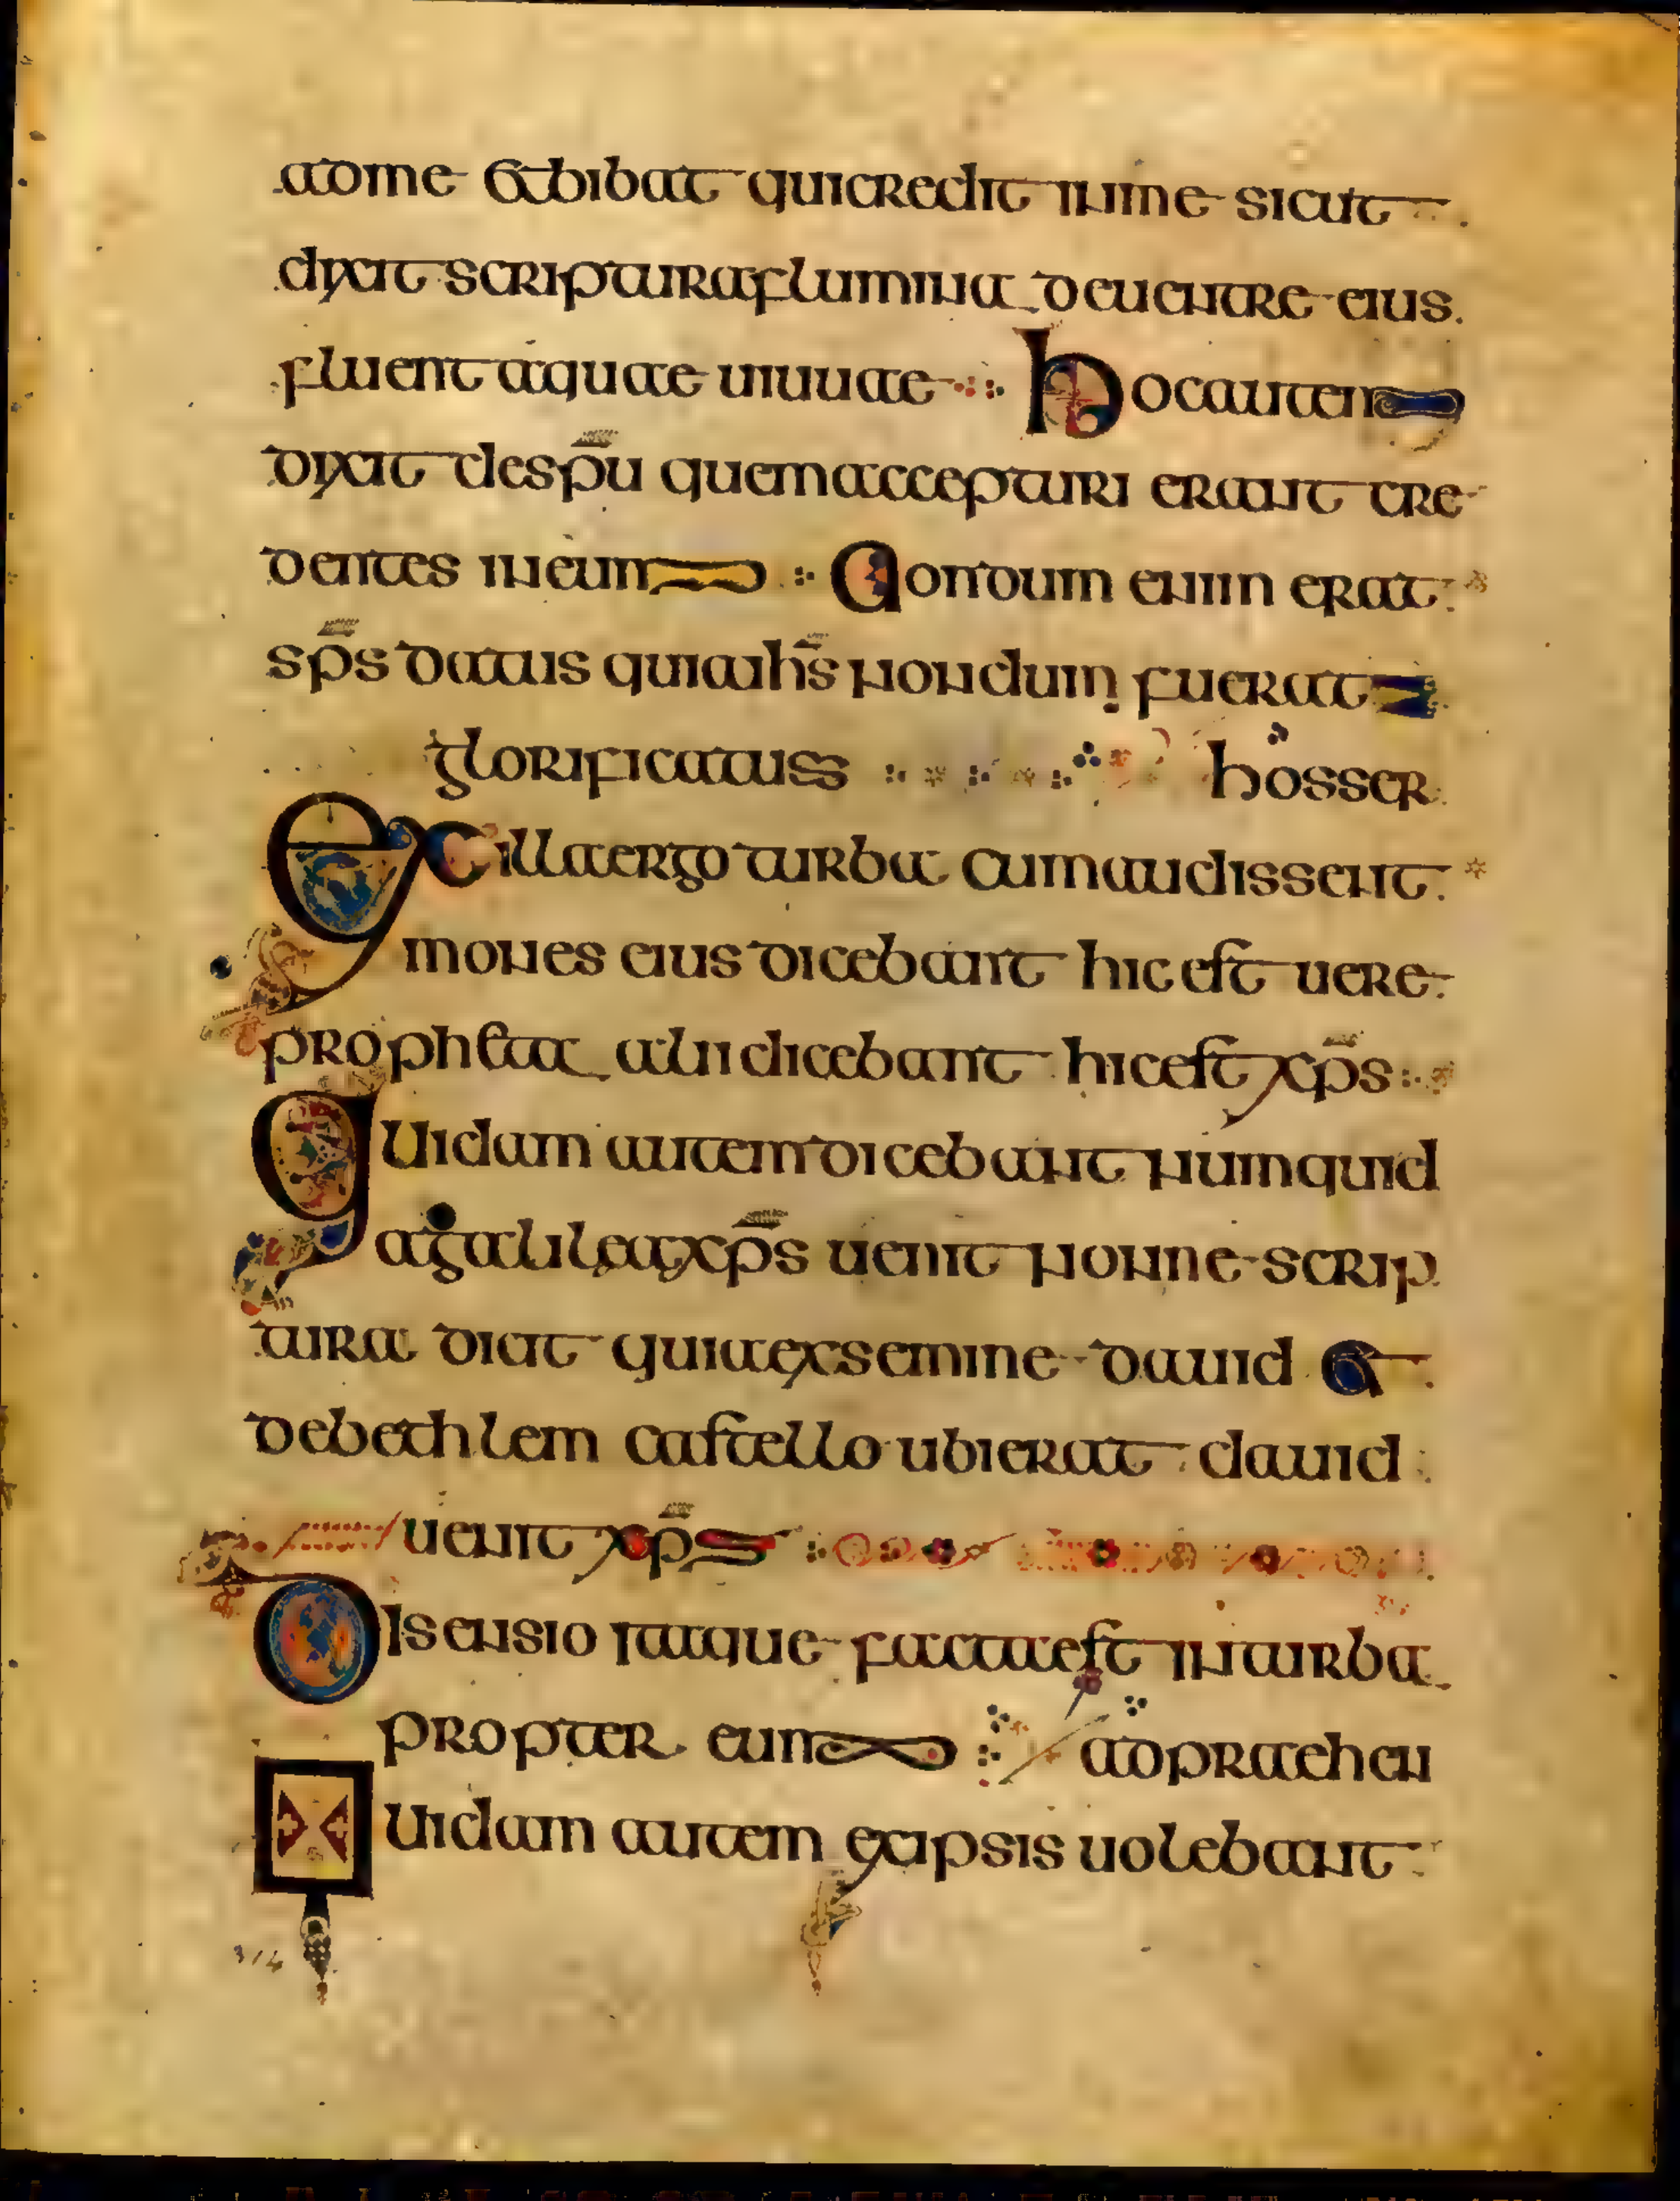 adme et bibat qui credit in me sicut
dixit scriptura flumina de uentre eius
fluent aquae uiuuae Hoc autem
dixit de sp̄u quem accepturi erant cre
dentes in eum Nondum enim erat
sp̄s datus quia ih̄s nondum fuerat
glorificatuss hos ser
Ex illa ergo turba cum audissent
mones eius dicebant hic est uere
propheta alii dicebant hic est xp̄s
Quidam autem dicebant numquid
a galilea xp̄s uenit nonne scrip
tura dicit quia ex semine dauid et
de bethlem castello ubi erat dauid
uenit xp̄s
Disensio itaque facta est in turba
propter eum adpraehen
Quidam autem ex ipsis uolebant